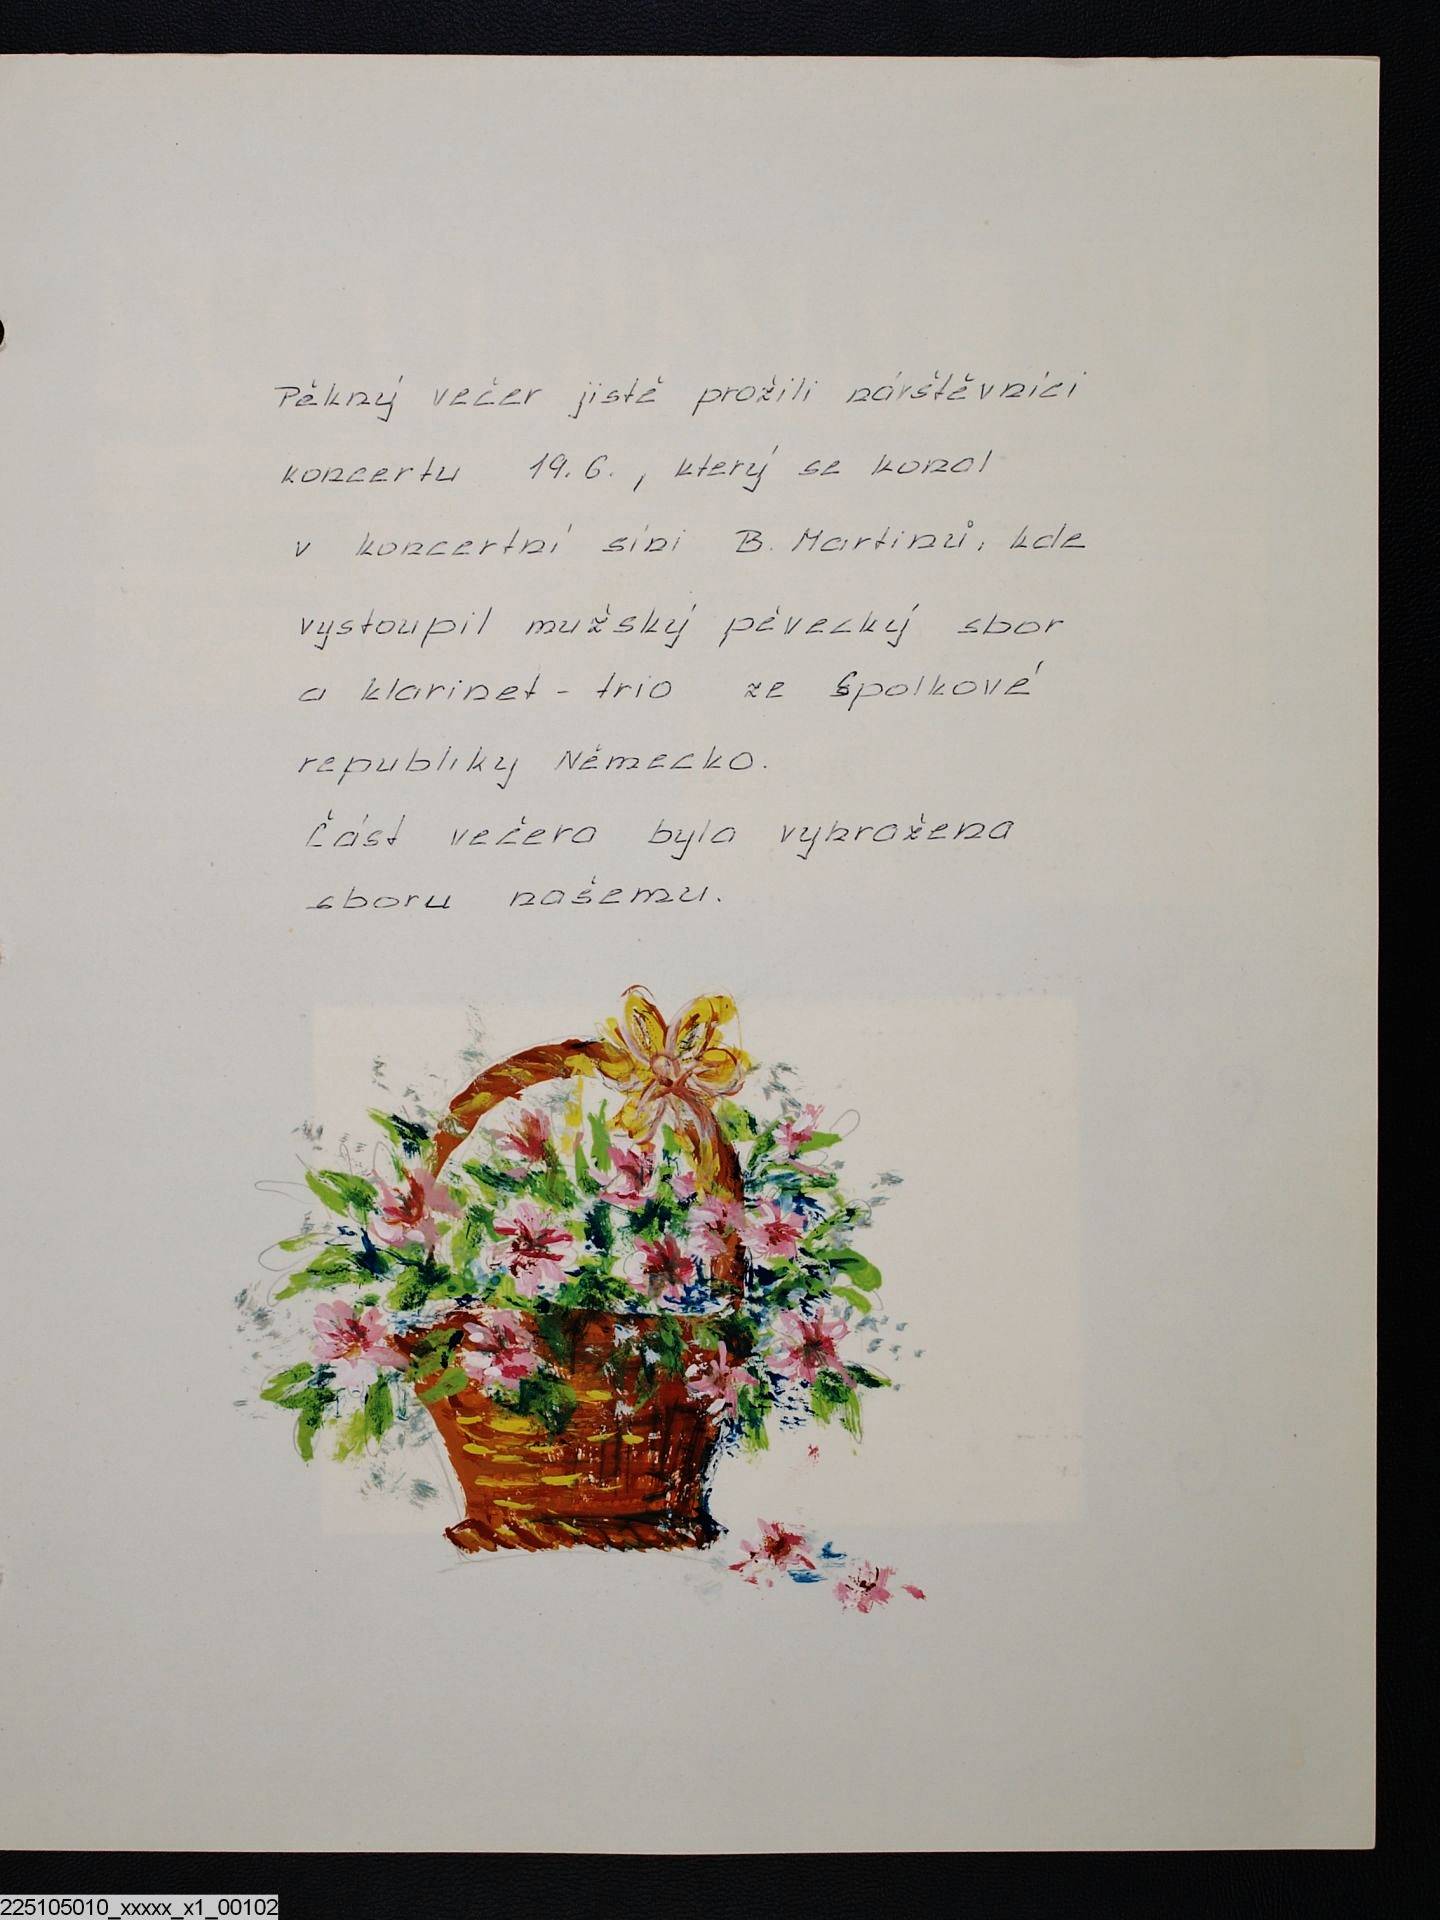 Pěkný večer jistě prožili návštěvníci
koncertu 19.6., který se konal
v koncertní síni B. Martinů, kde
vystoupil mužský pěvecký sbor
a klarinet - trio ze Spolkové
republiky Německo.
Část večera byla vyhražena
sboru našemu.
225105010_xxxxx_x1_00102